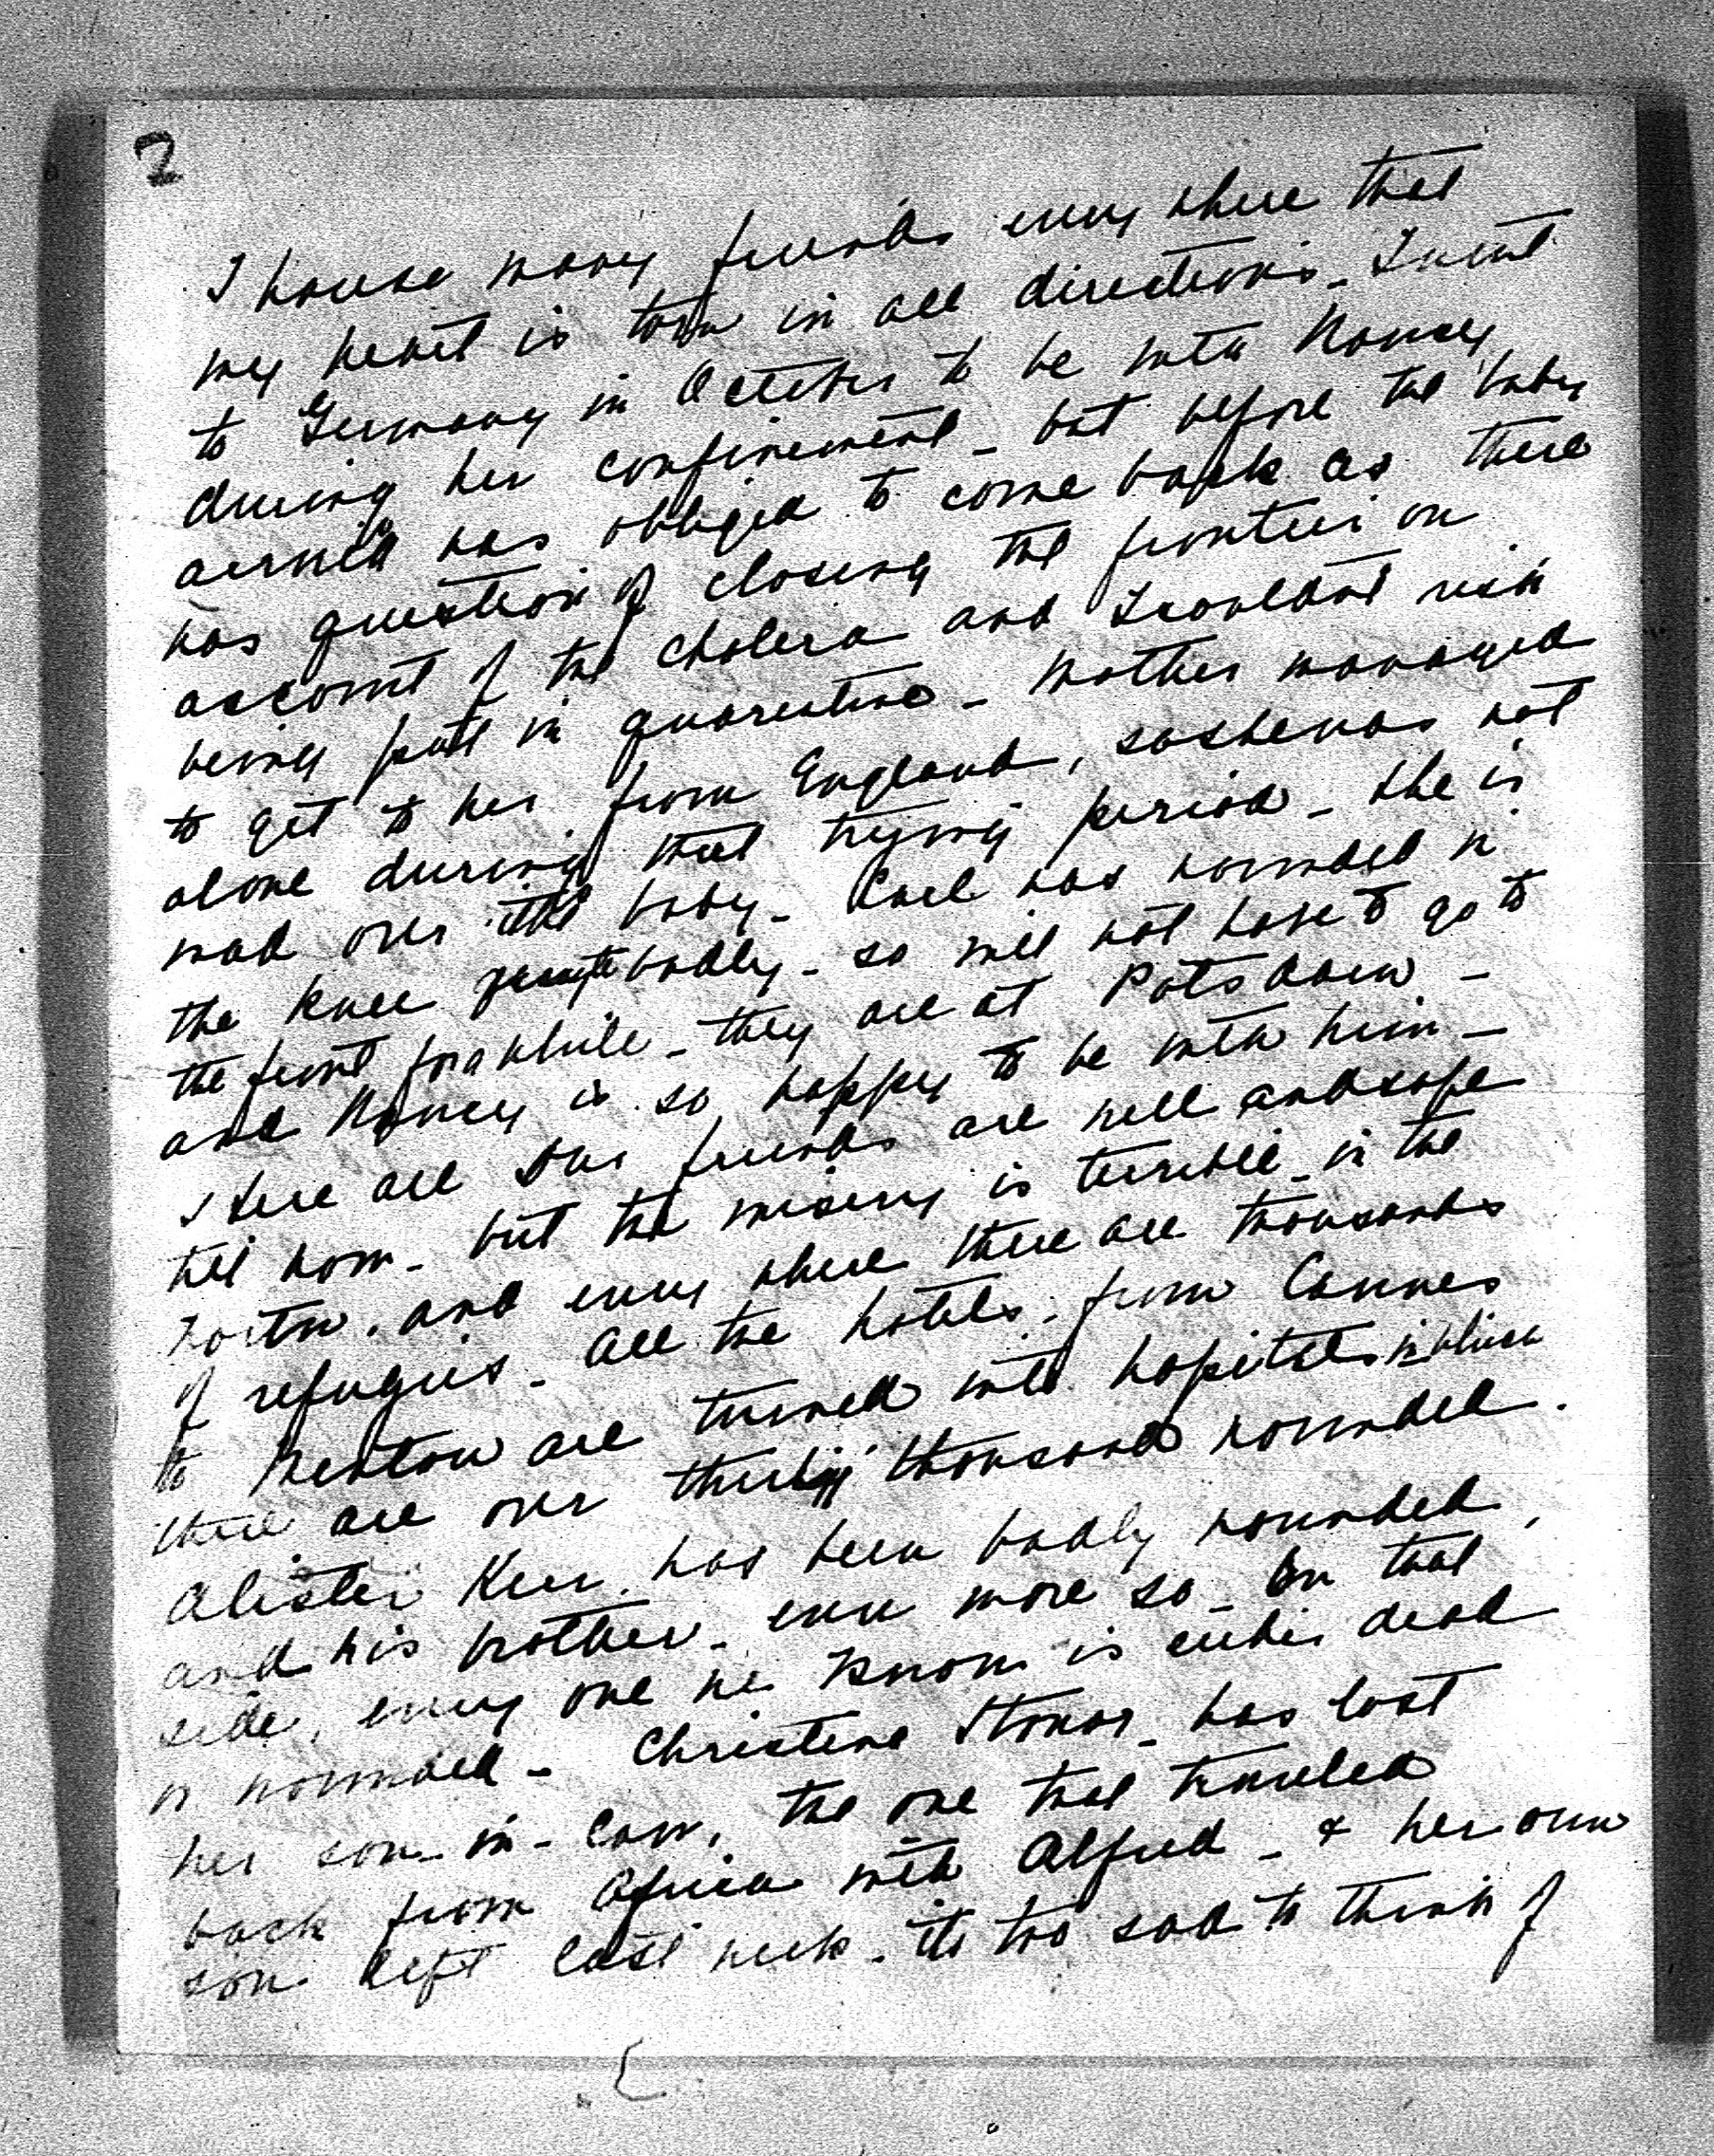 2
I have so many friends every where that
my heart is torn in all directions - I went
to Germany in October to be with Nancy
during her confinement - but before the baby
arrived was obliged to come back as there
was question of closing the frontier on
account of the cholera and I couldnt risk
being put in quarantine - Mother managed
to get to her from England, so she was not
alone during that trying period - She is
mad over the baby - Carl was wounded in
the knee badly - so will not have to go to
the front for a while - they are at Potsdam -
and Nancy is so happy to be with him -
Here all our friends are well and safe
till now - but the misery is terrible in the
North, and every where there are thousands
of refugies - All the hotels from Cannes
to Menton are turned into hopitals in which
there are over thirty thousand wounded.
Alister Kerr has been badly wounded,
and his brother - even more so - On that
side, every one we know is either dead
or wounded - Christine Stonor has lost
her son-in-law, the one that traveled
back from Africa with Alfred - & her own
son left last week - its too sad to think of